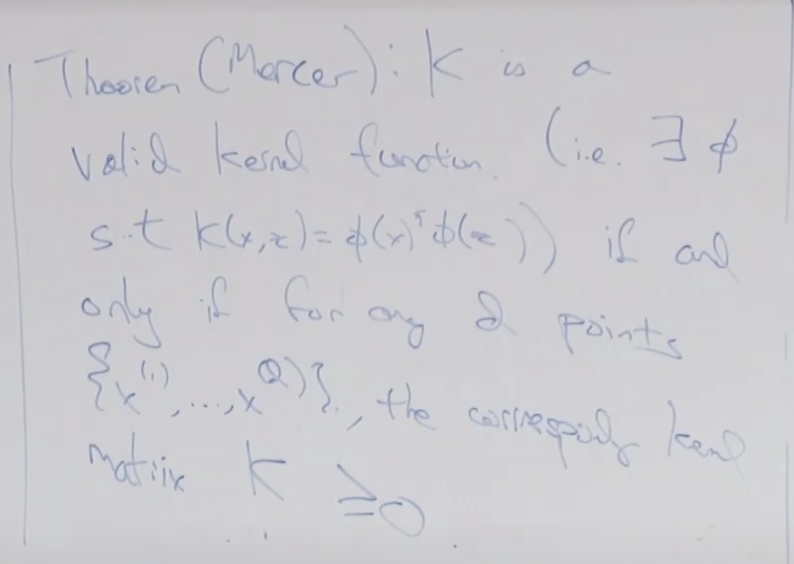 Theorem (Mercer): K is a
valid kernel function. (i.e. ∃ φ
s.t K(x,z)=φ(x)ᵀφ(z)) if and
only if for any d points
{x⁽¹⁾,...,x⁽ᵈ⁾}, the corresponding kernel
matrix K ≥0